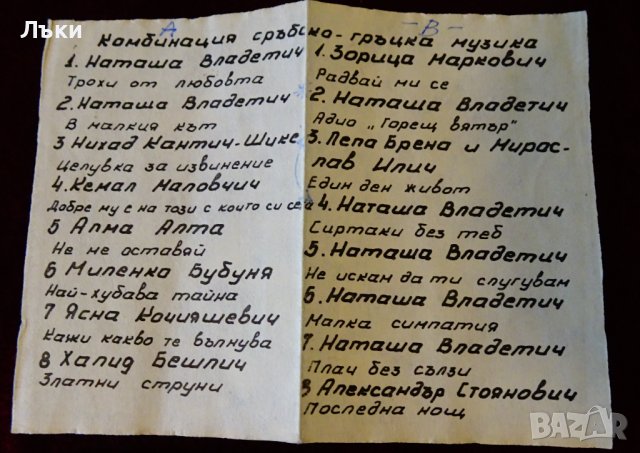 Лъки
А
- В -
Комбинация сръбско-гръцка музика
1. Наташа Владетич
Трохи от любовта
2. Наташа Владетич
В малкия кът
3 Нихад Кантич-Шике
Целувка за извинение
4. Кемал Маловчич
Добре му е на този с който си сега
5 Алма Алта
Не ме оставяй
6 Миленко Бубуня
Най-хубава тайна
7 Ясна Кочияшевич
Кажи какво те вълнува
8 Халид Бешлич
Златни струни
1. Зорица Маркович
Радвай ми се
2. Наташа Владетич
Адио "Горещ вятър"
3. Лепа Брена и Мирас-
лав Илич
Един ден живот
4. Наташа Владетич
Сиртаки без теб
5. Наташа Владетич
Не искам да ти слугувам
6. Наташа Владетич
Малка симпатия
7. Наташа Владетич
Плач без сълзи
8 Александър Стоянович
Последна нощ
BAZAR